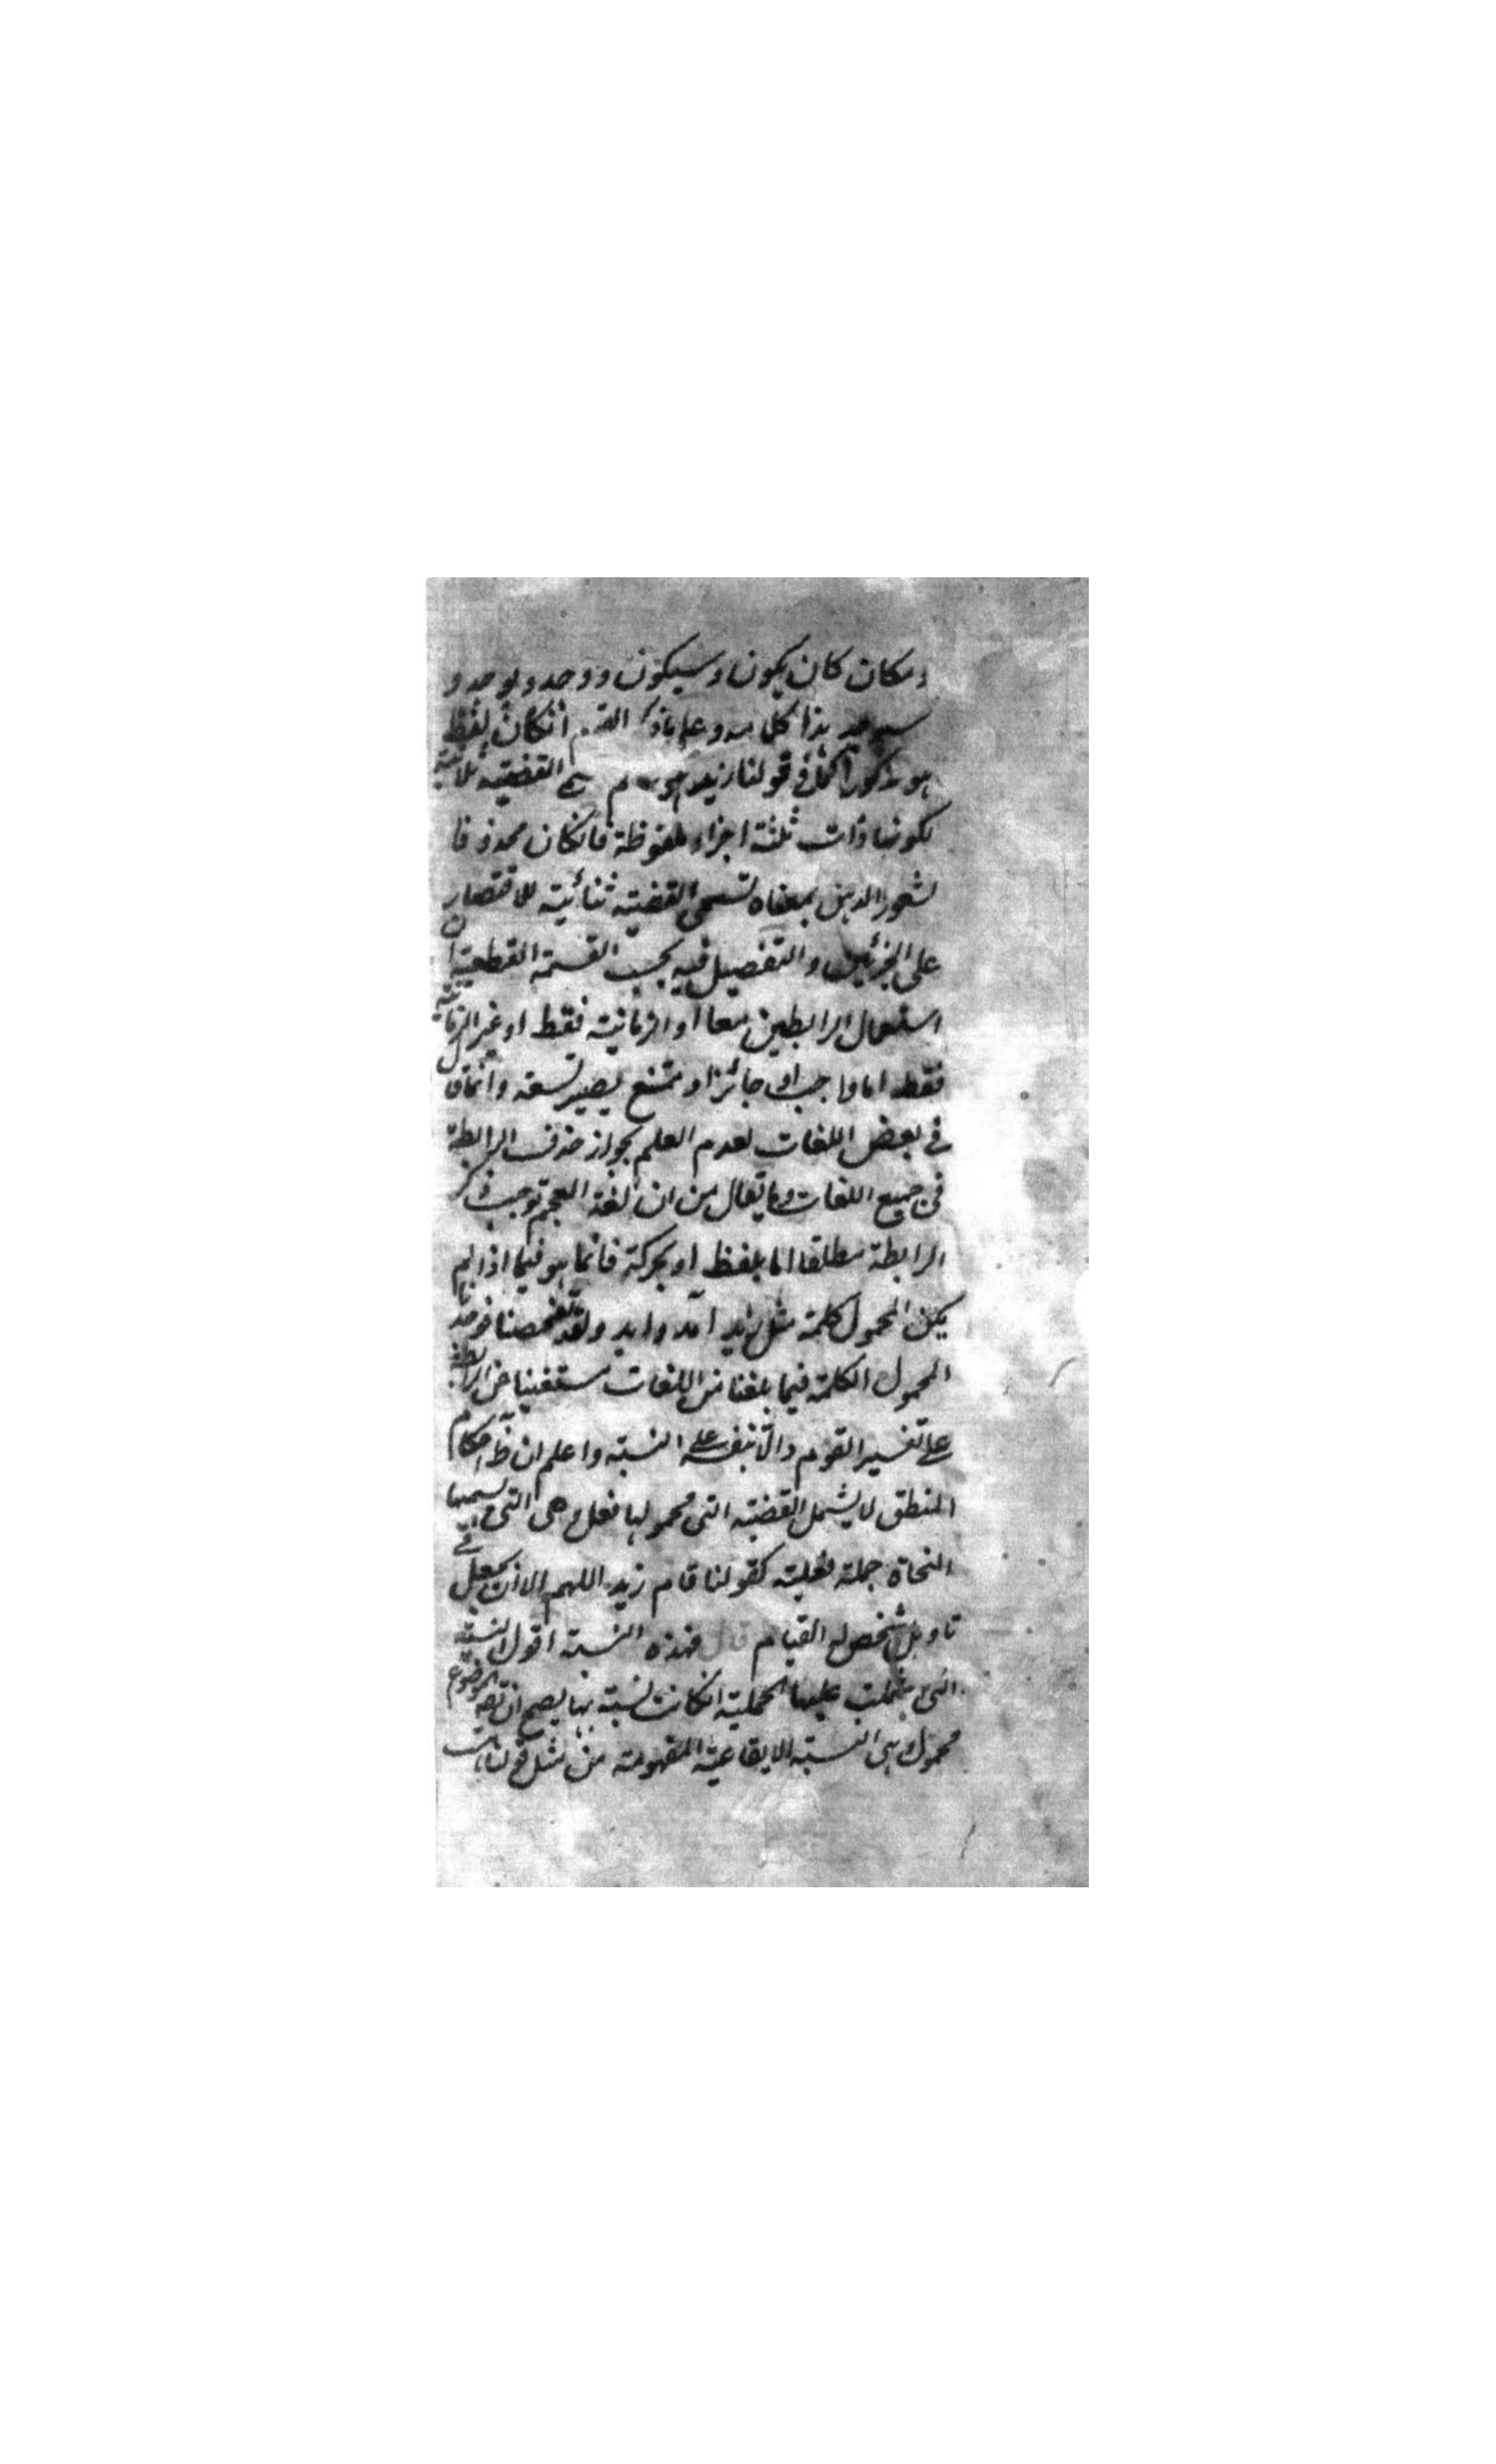 ومكان كان يكون وسيكون ووجد ويوجد و
سيوجد هذا كلامه وعلى ما ذكر القوم ان كان لفظ
هو مذكورا كما في قولنا زيد هو عالم سمي القضية ثلاثية
لكونها ذات ثلثة اجزاء ملفوظة فان كان محذوفا
لشعور الذهن بمعناه تسمى القضية ثنائية للاقتصار
على الجزئين والتفصيل فيه بحسب القسمة القطعية ان
استعمال الرابطين معا او الزمانية فقط او غير الزمانية
فقط اما واجب او جائز او ممتنع يصير تسعة وانما قال
في بعض اللغات لعدم العلم بجواز حذف الرابطة
في جميع اللغات وما يقال من ان لغة العجم توجب ذكر
الرابطة مطلقا اما بلفظ او بحركة فانما هو فيما اذا لم
يكن المحمول كلمة مثل زيد آمد وايد ولقد تفحصنا فوجدنا
المحمول الكلمة فيما بلغنا من اللغات مستغنيا عن الرابطة
على تفسير القوم دالا بنفسه على النسبة واعلم ان احكام
المنطق لا يشمل القضية التي محمولها فعل وهي التي يسميها
النحاة جملة فعلية كقولنا قام زيد اللهم الا ان يجعل في
تاويل شخص له القيام قال فهذه النسبة اقول النسبة
التي اشتملت عليها الحملية ان كانت نسبة بها يصح ان الموضوع
محمول وهي النسبة الايقاعية المفهومة من مثل قولنا